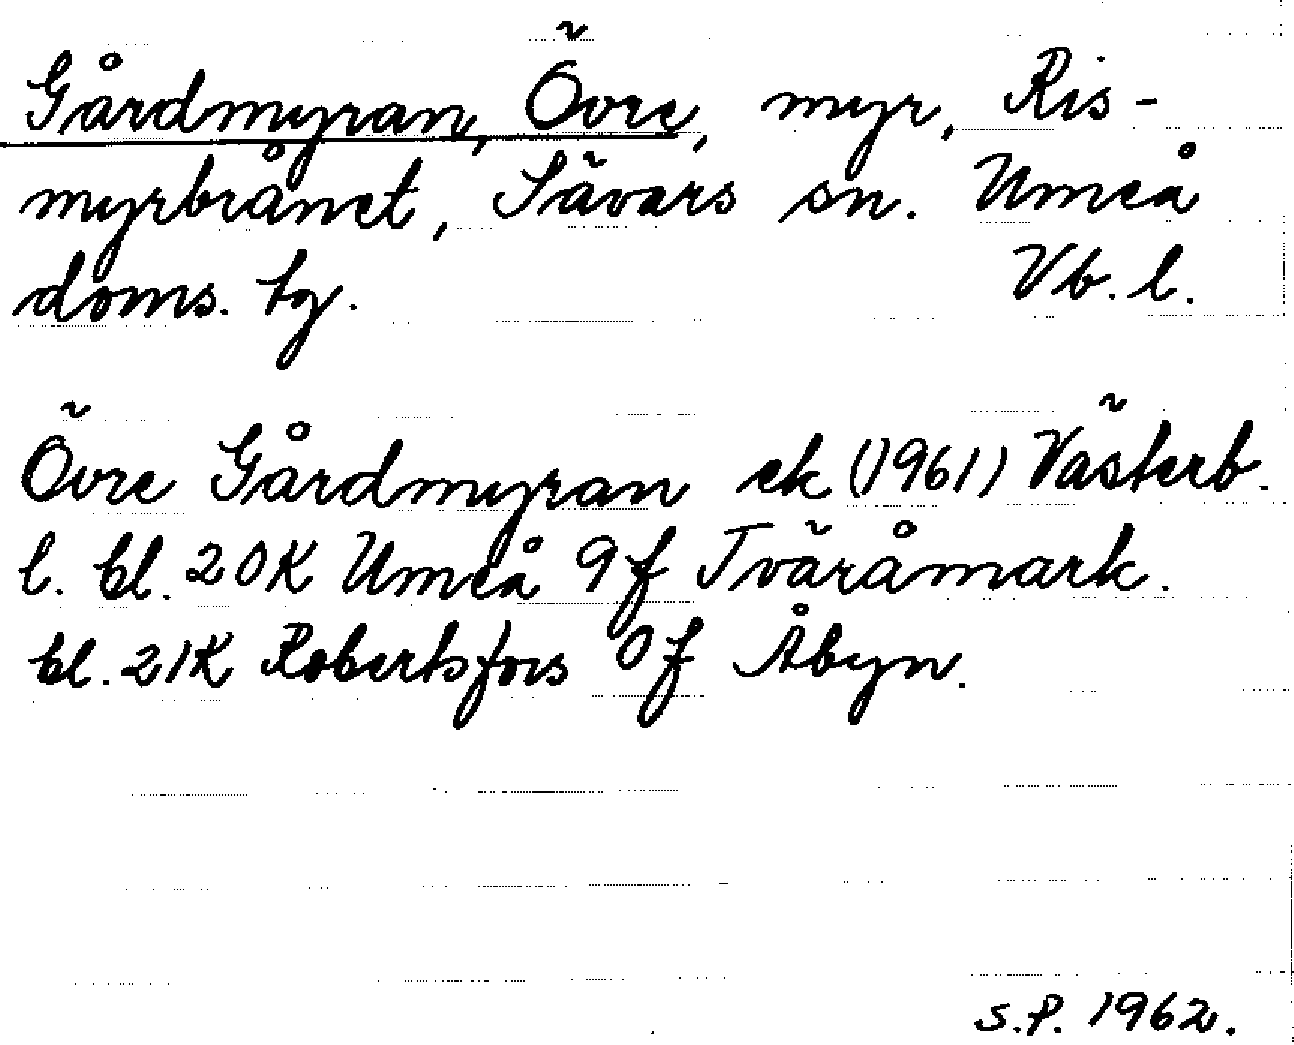 Gårdmyran, Övre, myr, Ris-
myrbrånet, Sävars sn. Umeå
doms. tg. Vb. l.
Övre Gårdmyran ek (1961) Västerb.
l. bl. 20K Umeå 9f Tväråmark.
bl. 21K Robertsfors 0f Åbyn.
S.P. 1962.